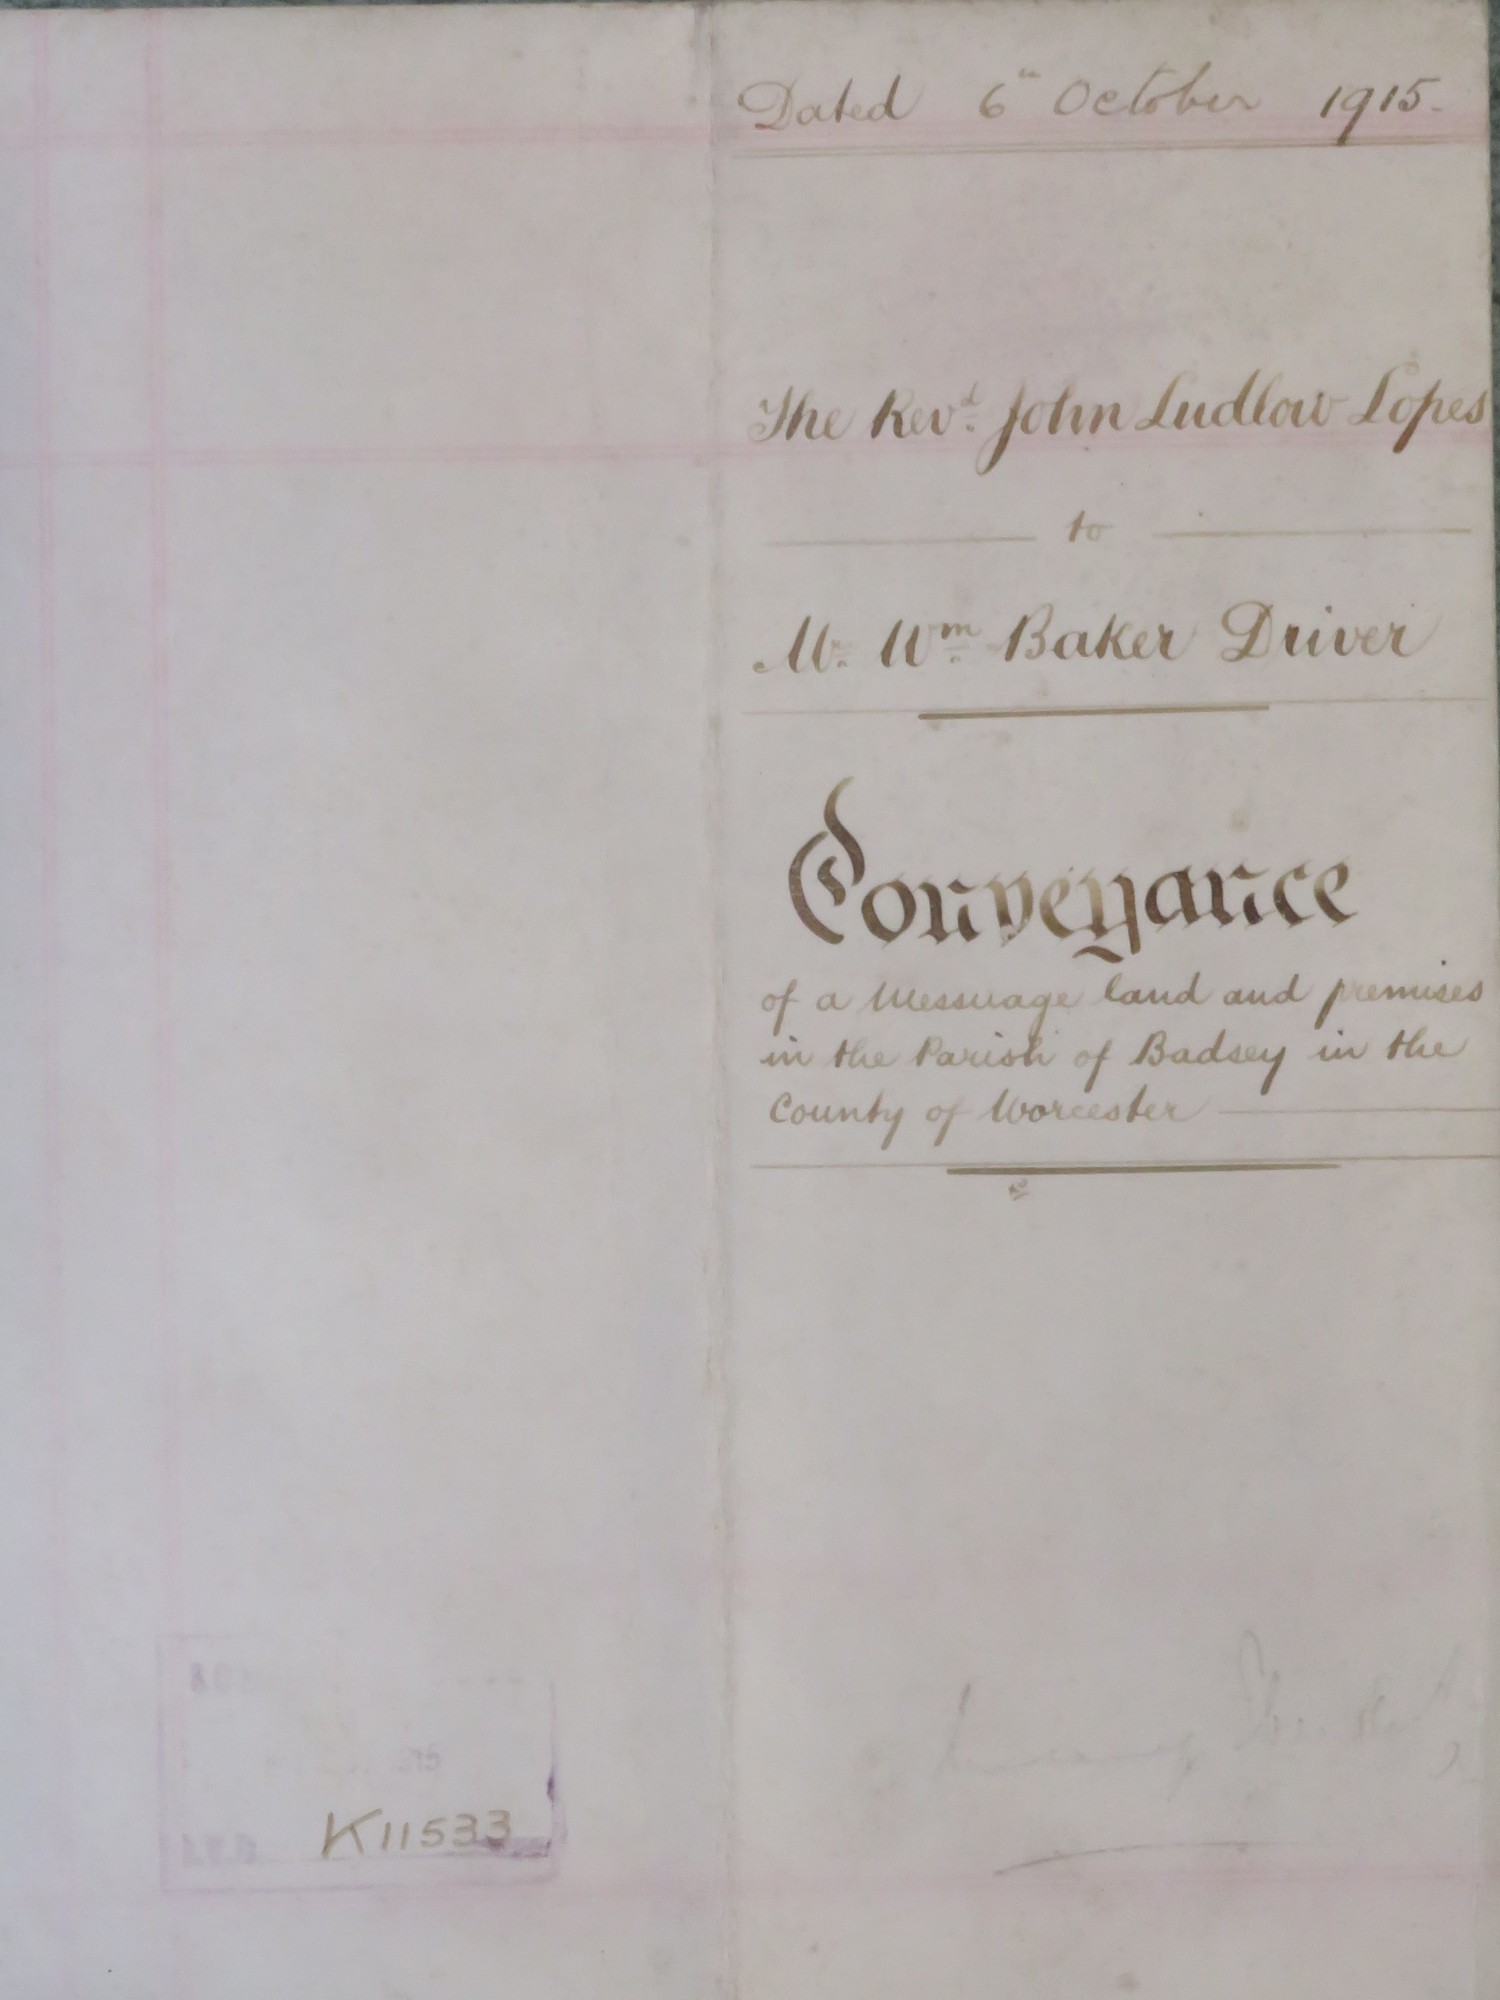 Dated 6th October 1915.
The Revd. John Ludlow Lopes
to
Mr. Wm. Baker Driver
Conveyance
of a Messuage land and premises
in the Parish of Badsey in the
County of Worcester
K11533